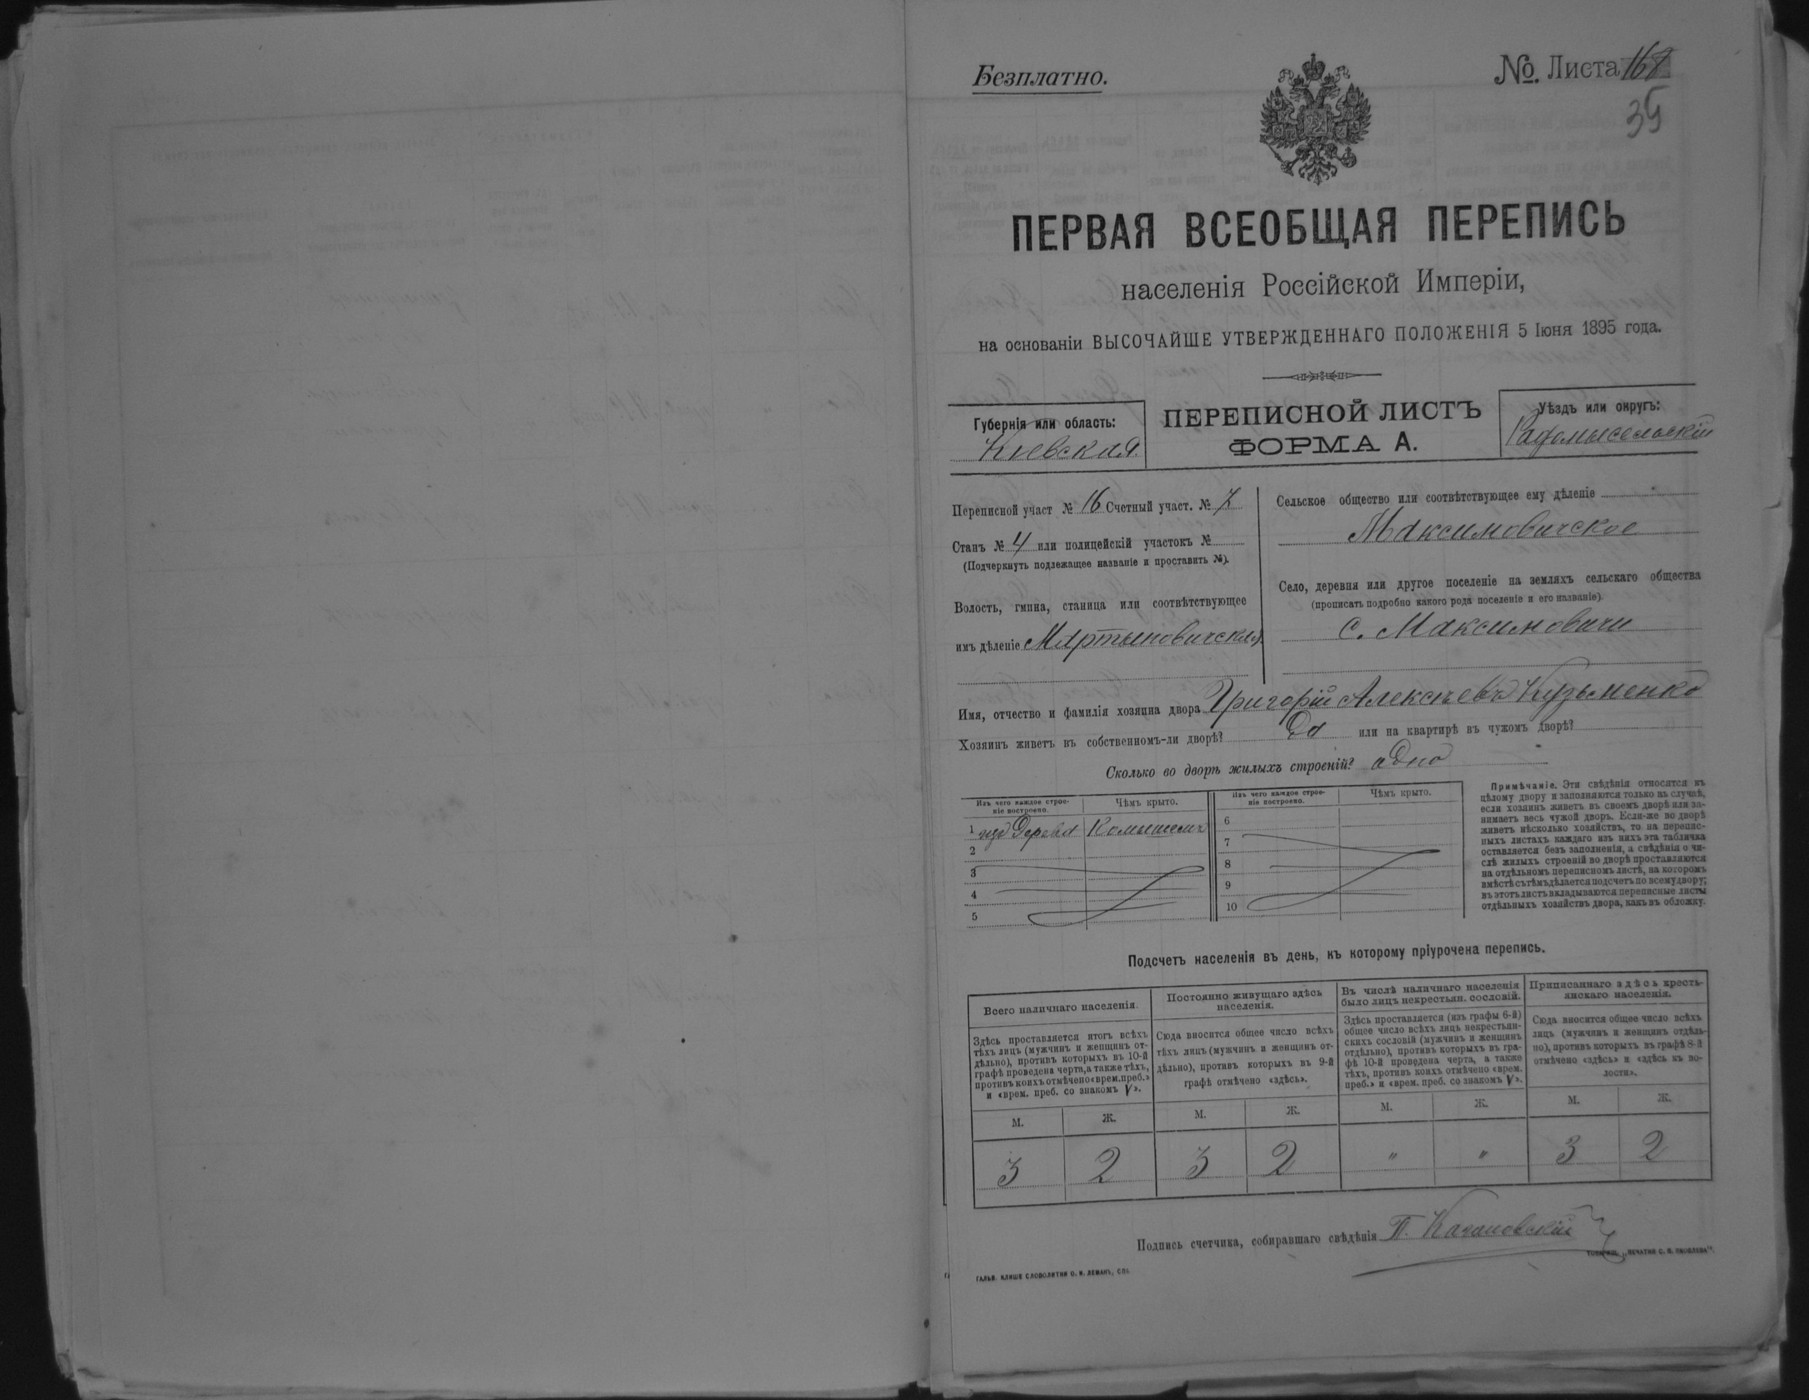 Безплатно.
№. Листа 168
35
ПЕРВАЯ ВСЕОБЩАЯ ПЕРЕПИСЬ
населенія Россійской Имперіи,
на основаніи ВЫСОЧАЙШЕ УТВЕРЖДЕННАГО ПОЛОЖЕНІЯ 5 Іюня 1895 года.
Губернія или область:
Кіевская
ПЕРЕПИСНОЙ ЛИСТЪ
ФОРМА А.
Уѣздъ или округъ:
Радомысельскій
Переписной участ № 16 Счетный участ. № 7
Станъ № 4 или полицейскій участокъ №
(Подчеркнуть подлежащее названіе и проставить №).
Волость, гмина, станица или соотвѣтствующее
имъ дѣленіе Мартыновичская
Сельское общество или соотвѣтствующее ему дѣленіе
Максимовичское
Село, деревня или другое поселеніе на земляхъ сельскаго общества
(прописать подробно какого рода поселеніе и его названіе).
с. Максимовичи
Имя, отчество и фамилія хозяина двора Григорій Алексѣевъ Кузьменко
Хозяинъ живетъ въ собственномъ-ли дворѣ? Да или на квартирѣ въ чужомъ дворѣ?
Сколько во дворѣ жилыхъ строеній? одно
Изъ чего каждое строе-
ніе построено.
Чѣмъ крыто.
1 изъ Дерева Комышемъ
2
3
4
5
Изъ чего каждое строе-
ніе построено.
Чѣмъ крыто.
6
7
8
9
10
Примѣчаніе. Эти свѣдѣнія относятся къ
цѣлому двору и заполняются только въ случаѣ,
если хозяинъ живетъ въ своемъ дворѣ или за-
нимаетъ весь чужой дворъ. Если-же во дворѣ
живетъ нѣсколько хозяйствъ, то на перепис-
ныхъ листахъ каждаго изъ нихъ эта табличка
оставляется безъ заполненія, а свѣдѣнія о чи-
слѣ жилыхъ строеній во дворѣ проставляются
на отдѣльномъ переписномъ листѣ, на которомъ
вмѣстѣ съ тѣмъ дѣлается подсчетъ по всему двору;
въ этотъ листъ вкладываются переписные листы
отдѣльныхъ хозяйствъ двора, какъ въ обложку.
Подсчетъ населенія въ день, къ которому пріурочена перепись.
Всего наличнаго населенія.
Здѣсь проставляется итогъ всѣхъ
тѣхъ лицъ (мужчинъ и женщинъ от-
дѣльно), противъ которыхъ въ 10-й
графѣ проведена черта, а также тѣхъ,
противъ коихъ отмѣчено «врем. преб.»
и «врем. преб. со знакомъ V».
М. Ж.
3 2
Постоянно живущаго здѣсь
населенія.
Сюда вносится общее число всѣхъ
тѣхъ лицъ (мужчинъ и женщинъ от-
дѣльно), противъ которыхъ въ 9-й
графѣ отмѣчено «здѣсь».
М. Ж.
3 2
Въ числѣ наличнаго населенія
было лицъ некрестьян. сословій.
Здѣсь проставляется (изъ графы 6-й)
общее число всѣхъ лицъ некрестьян-
скихъ сословій (мужчинъ и женщинъ
отдѣльно), противъ которыхъ въ гра-
фѣ 10-й проведена черта, а также
тѣхъ, противъ коихъ отмѣчено «врем.
преб.» и «врем. преб. со знакомъ V».
М. Ж.
" "
Приписаннаго здѣсь кресть-
янскаго населенія.
Сюда вносится общее число всѣхъ
лицъ (мужчинъ и женщинъ отдѣль-
но), противъ которыхъ въ графѣ 8-й
отмѣчено «здѣсь» и «здѣсь въ во-
лости».
М. Ж.
3 2
Подпись счетчика, собиравшаго свѣдѣнія П. Качановскій
ГАЛЬВ. КЛИШЕ СЛОВОЛИТНИ О. И. ЛЕМАНЪ, СПБ.
ПЕЧАТНЯ С. П. ЯКОВЛЕВА